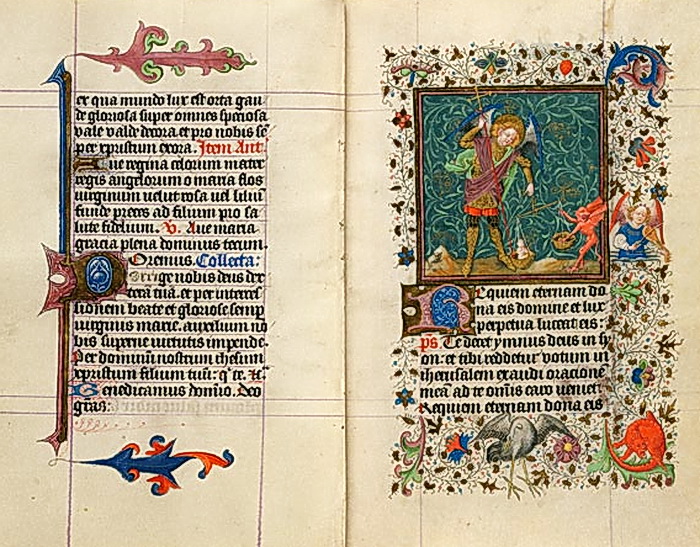 ex qua mundo lux est orta gau
de gloriosa super omnes speciosa
vale valde decora et pro nobis se
per xpristum exora. Item Ant.
Aue regina celorum mater
regis angelorum o maria flos
uirginum uelut rosa uel lilium
funde preces ad filium pro sa
lute fidelium. V. Aue maria
gracia plena dominus tecum.
Oremus. Collecta:
Porrige nobis deus dex
teram tuam. et per interces
sionem beate et gloriose semper
uirginis marie. auxilium no
bis superne uirtutis impende.
Per dominum nostrum ihesum
xpristum filium tuum: q'
Benedicamus domino. Deo
gratias:
Requiem eternam do
na eis domine et lux
perpetua luceat eis:
ps Te decet ymnus deus in sy
on: et tibi reddetur votum in
iherusalem exaudi oracionem
meam ad te omnis caro veniet
Requiem eternam dona eis